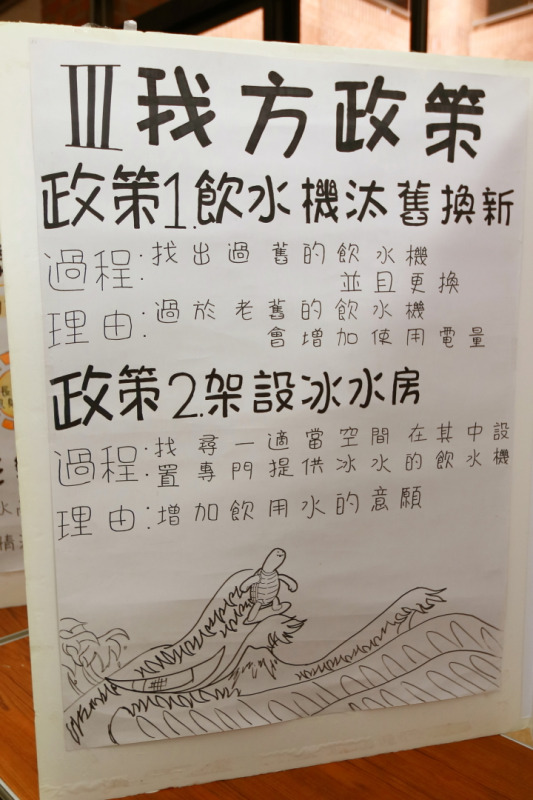 III 我方政策
政策1.飲水機汰舊換新
過程:找出過舊的飲水機
並且更換
理由:過於老舊的飲水機
會增加使用電量
政策2.架設冰水房
過程:找尋一適當空間在其中設
置專門提供冰水的飲水機
理由:增加飲用水的意願